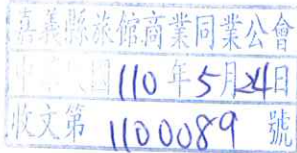 嘉義縣旅館商業同業公會
中華民國110年5月24日
收文第1100089號